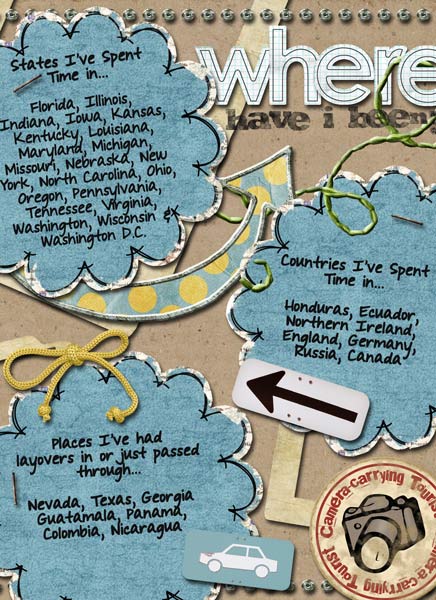 where
have i been?
States I've Spent
Time in...
Florida, Illinois,
Indiana, Iowa, Kansas,
Kentucky, Louisiana,
Maryland, Michigan,
Missouri, Nebraska, New
York, North Carolina, Ohio,
Oregon, Pennsylvania,
Tennessee, Virginia,
Washington, Wisconsin &
Washington D.C.
Countries I've Spent
Time in...
Honduras, Ecuador,
Northern Ireland,
England, Germany,
Russia, Canada
Places I've had
layovers in or just passed
through...
Nevada, Texas, Georgia
Guatamala, Panama,
Colombia, Nicaragua
Camera-carrying Tourist
Camera-carrying Tourist